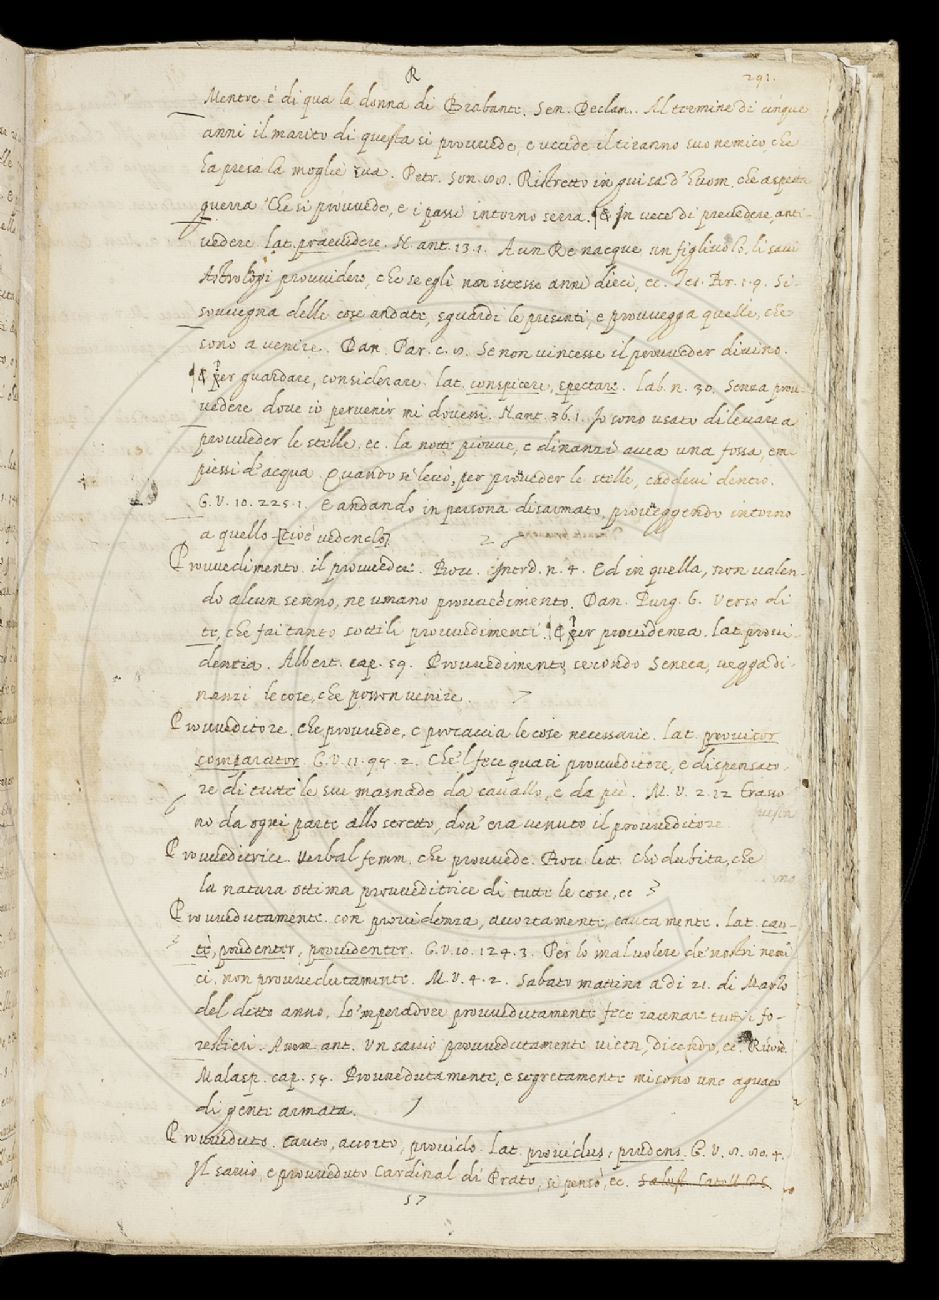 R
291.
Mentre è di qua la donna di Brabante. Sen. Declam. Al termine di cinque
anni il marito di questa si provvede, e uccide il tiranno suo nemico, che
ha presa la moglie sua. Petr. Son. Ristretto in guisa d'huom, che aspetta
guerra Che si provvede, e i passi intorno serra. ¶ In vece di prevedere, anti-
vedere. lat. praevidere. N. ant. 13.1. A un Re nacque un figliuolo, li savi
Astrologi provvidero, che se egli non istesse anni dieci, ec. Tes. Br. 1.9. Si
sovvegna delle cose andate, sguardi le presenti, e provvegga quelle, che
sono a venire. Dan. Par. c. Se non vincesse il provveder divino.
¶ Per guardare, considerare. lat. conspicere, spectare. lab. n. 30. Senza prov-
vedere dove io pervenir mi dovessi. N. ant. 36.1. Io sono usato di levare a
provveder le stelle. ec. la notte piovve, e dinanzi avea una fossa, em-
piessi d'acqua. Quando si levò, per proveder le stelle, caddevi dentro.
G. V. 10. 225.1. E andando in persona disarmato, proveggendo intorno
a quello [cioè vedendo]
Provvedimento. il provvedere. Bocc. Introd. n. 4. Ed in quella, non valen-
do alcun senno, ne umano provvedimento. Dan. Purg. 6. Verso di
te, che fai tanto sottili provvedimenti. ¶ Per providenza. lat. provi-
dentia. Albert. cap. 59. Provvedimento, secondo Seneca, vegga di-
nanzi le cose, che posson venire.
Provveditore. che provvede, e procaccia le cose necessarie. lat. provisor
comparator. G. V. 11. 94. 2. Che 'l fece quasi provveditore, e dispensato-
re di tutte le sue masnade da cavallo, e da piè. M. V. 2. 12 trasso-
no da ogni parte allo stretto, dov'era venuto il provveditore
Provveditrice. Verbal femm. che provvede. Bocc. lett. Chi dubita, che
la natura ottima provveditrice di tutte le cose, ec
Provvedutamente. con providenza, accortamente, cautamente. lat. cau-
tè, prudenter, providenter. G. V. 10. 124. 3. Per lo mal volere de' nostri nemi
ci, non provvedutamente. M. V. 4. 2. Sabato mattina a dì 21. di Marzo
del detto anno, lo 'mperadore provvedutamente fece ravnare tutti i fo-
restieri. ant. Un savio provvedutamente dicendo, ec. Ricord.
Malasp. cap. 54. Provvedutamente, e segretamente misono uno aguato
di gente armata.
Provveduto. cauto, accorto, provido. lat. providus, prudens. G. V. 8. 80. 4.
Il savio, e provveduto Cardinal di Prato, si pensò, ec.
57